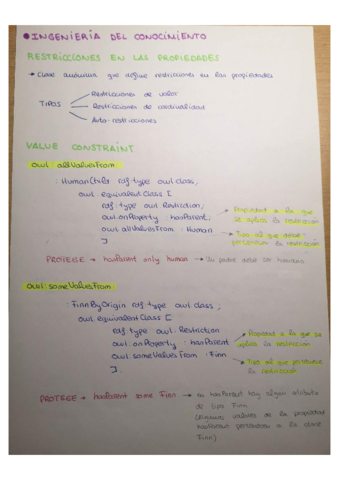 ● INGENIERÍA DEL CONOCIMIENTO
RESTRICCIONES EN LAS PROPIEDADES
→ Clase anónima que define restricciones en las propiedades
TIPOS
Restricciones de valor
Restricciones de cardinalidad
Auto-restricciones
VALUE CONSTRAINT
owl:allValuesFrom
:HumanChild rdf:type owl:class;
owl:equivalentClass [
rdf:type owl:Restriction;
owl:onProperty :hasParent; → Propiedad a la que
se aplica la restricción
owl:allValuesFrom :Human → Tipo al que debe
pertenecer la restricción
].
PROTEGE → hasParent only human → Un padre debe ser humano
owl:someValuesFrom
:FinnByOrigin rdf:type owl:class;
owl:equivalentClass [
rdf:type owl:Restriction
owl:onProperty :hasParent → Propiedad a la que se
aplica la restricción
owl:someValuesFrom :Finn → Tipo al que pertenece
la restricción
].
PROTEGE → hasParent some Finn → En hasParent hay algún
de tipo Finn
(Algunos valores de la propiedad
hasParent pertenecen a la clase
Finn)